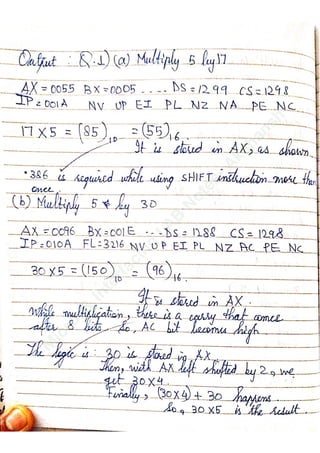 Output : Q.1) (a) Multiply 5 by 17
AX = 0055 BX = 0005 .... DS = 1299 CS = 1298
IP = 001A NV UP EI PL NZ NA PE NC
17 X 5 = (85)10 = (55)16.
It is stored in AX, as shown
• 386 is required while using SHIFT instruction more than
once.
(b) Multiply 5 by 30
AX = 0096 BX = 001E ... DS = 1288 CS = 1298
IP = 010A FL = 3216 NV UP EI PL NZ AC PE NC
30 X 5 = (150)10 = (96)16.
It is stored in AX.
While multiplication, there is a carry that comes
after 8 bits So, AC bit becomes high
The logic is : 30 is stored in AX
Then, with AX left shifted by 2, we
get 30 X 4.
Finally, (30 X 4) + 30 happens.
So, 30 X 5 is the result.